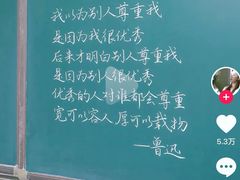 我以为别人尊重我
是因为我很优秀
后来才明白别人尊重我
是因为别人很优秀
优秀的人对谁都会尊重
宽可以容人厚可以载物
—鲁迅
5.3万